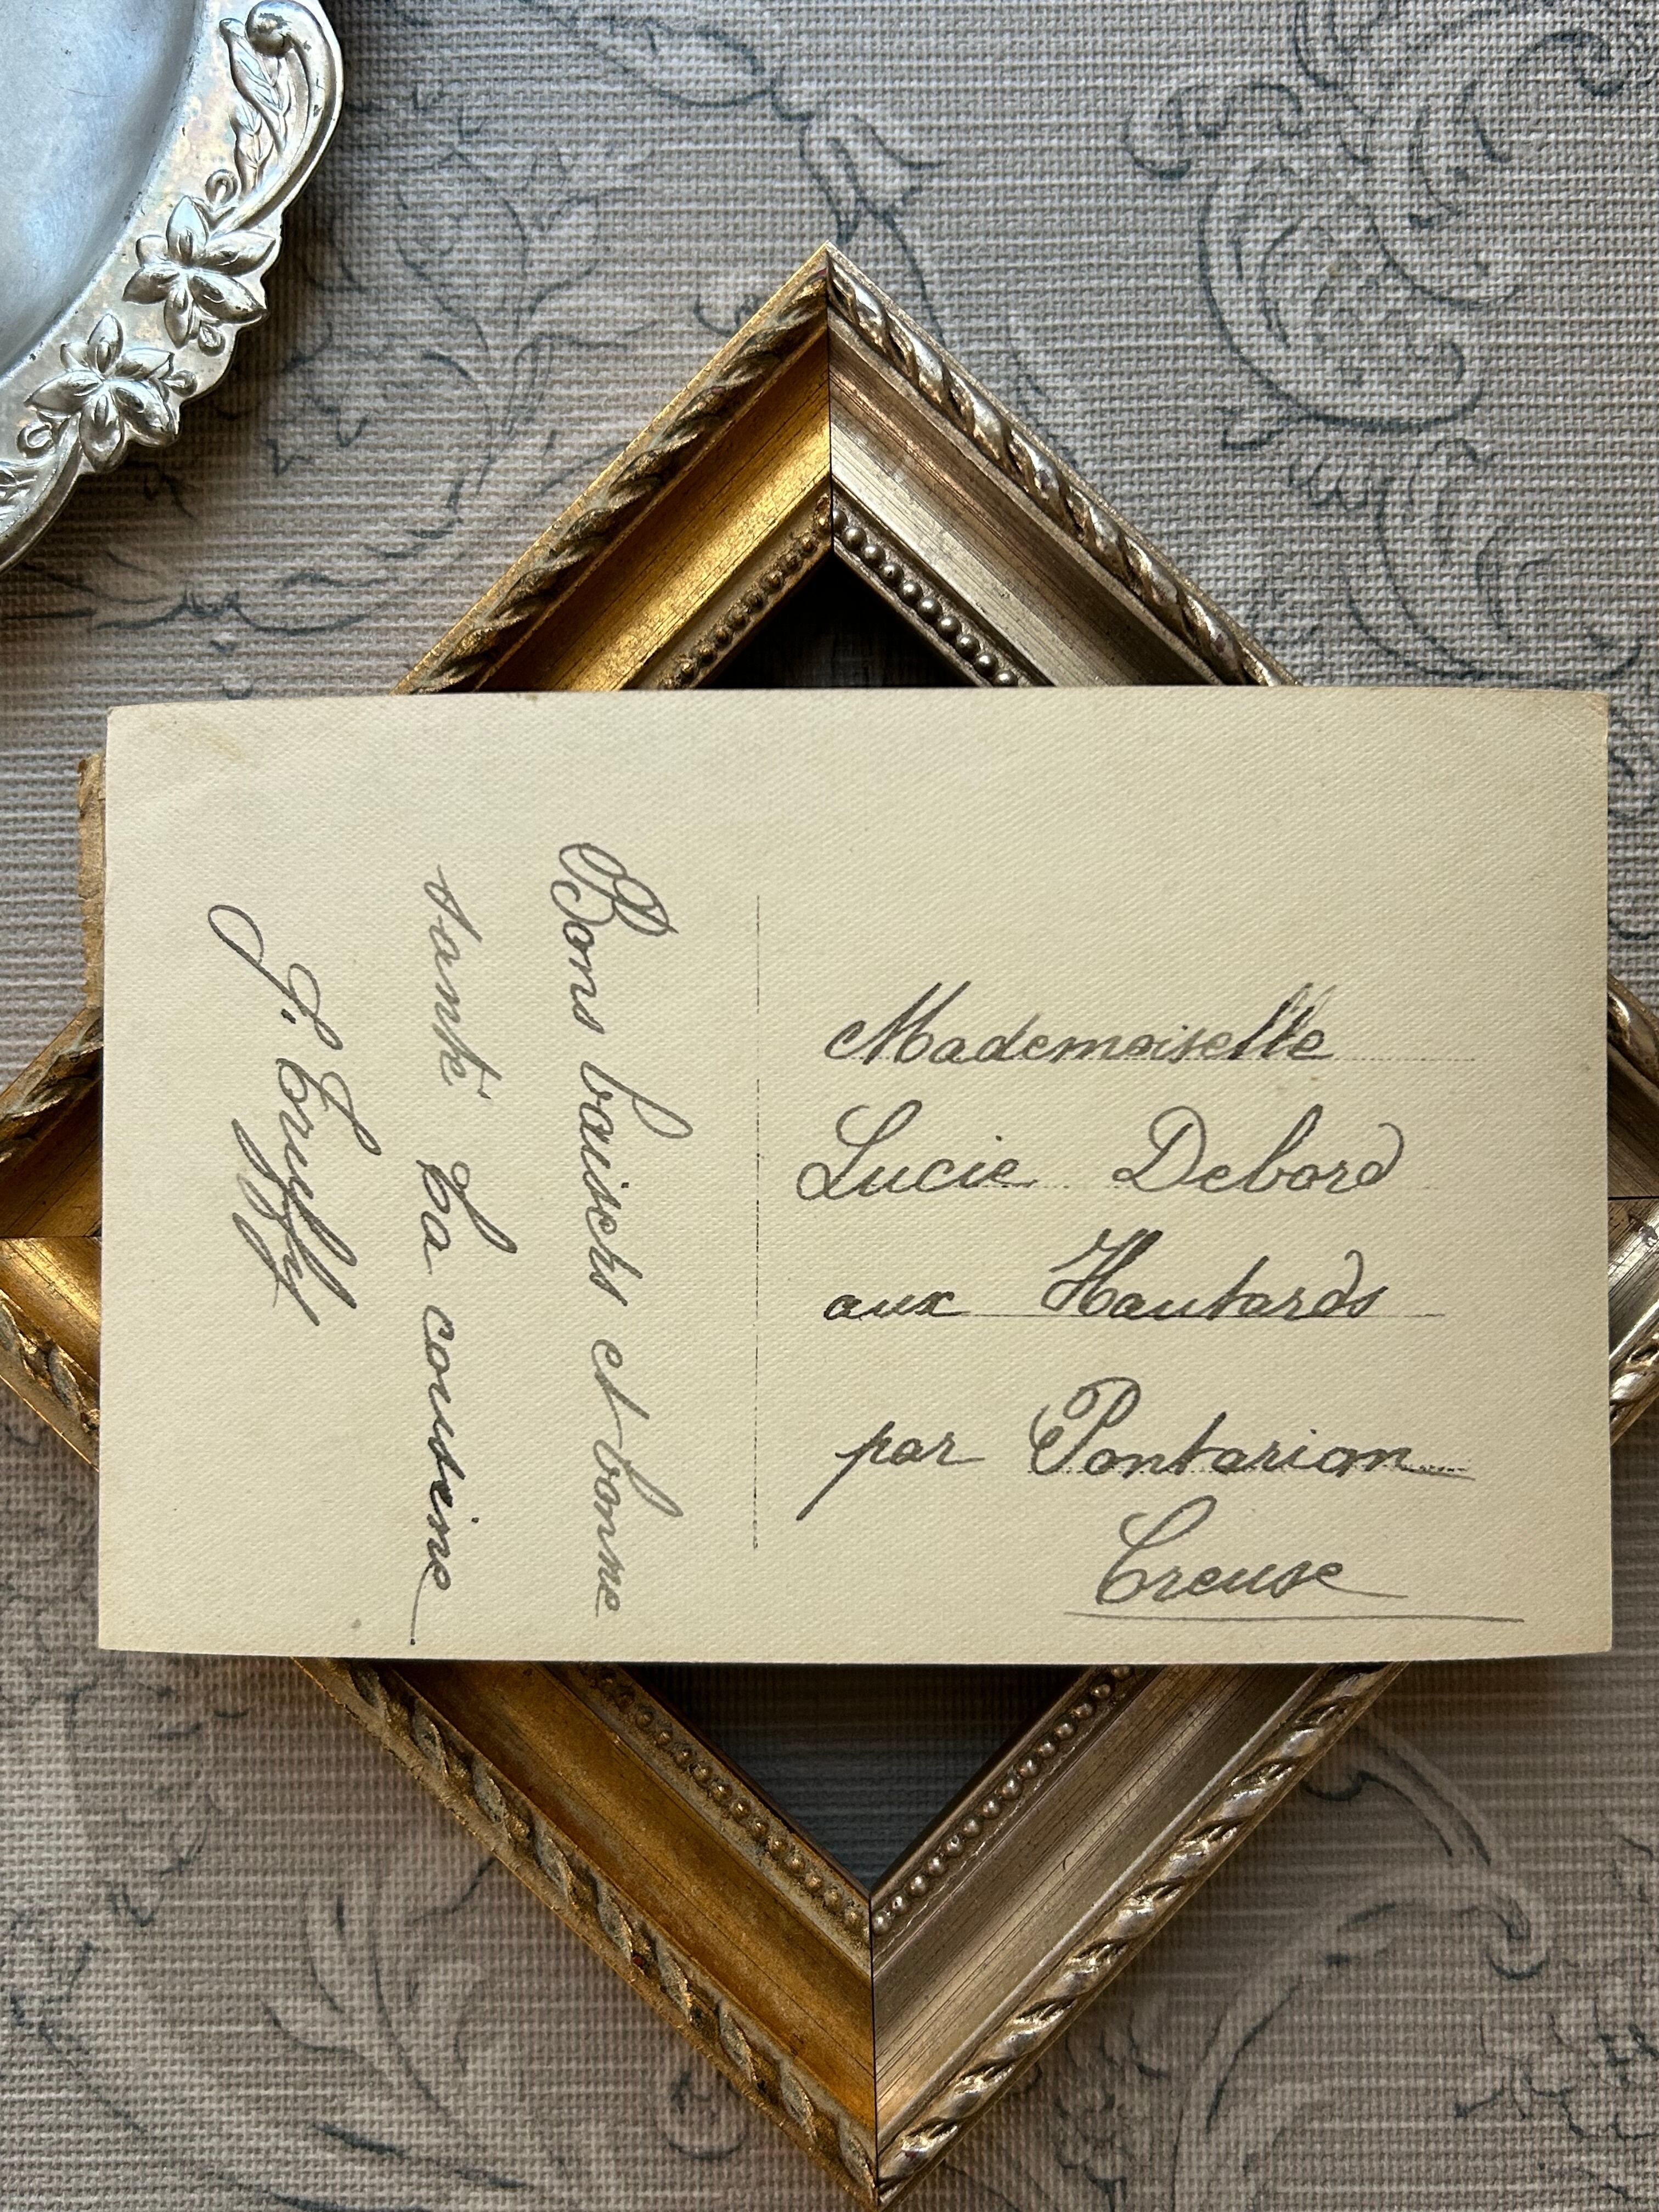 Bons baisers et bonne
santé Ta cousine
J. Truffy
Mademoiselle
Lucie Debord
aux Hautards
par Pontarion
Creuse